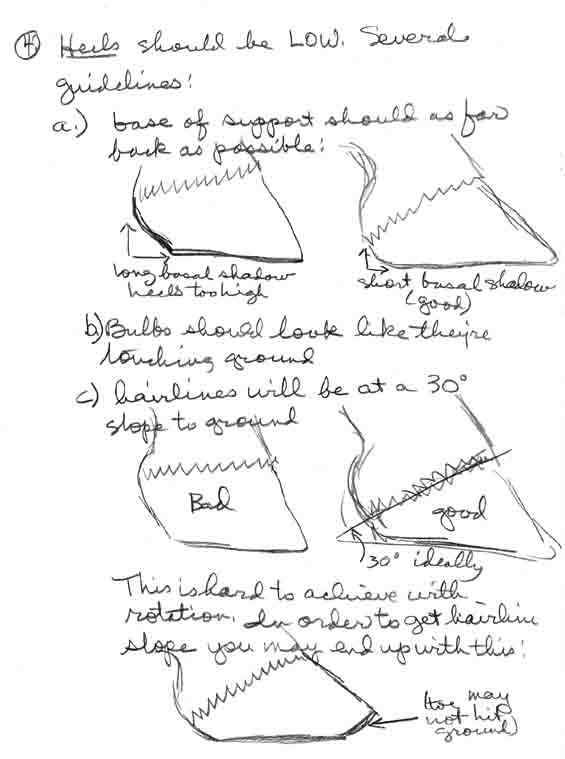 4. Heels should be LOW. Several
guidelines:
a.) base of support should as far
back as possible:
long basal shadow
heels too high
short basal shadow
(good)
b) Bulbs should look like they're
touching ground
c) hairlines will be at a 30°
slope to ground
Bad
good
30° ideally
This is hard to achieve with
rotation. In order to get hairline
slope you may end up with this:
(toe may
not hit
ground)